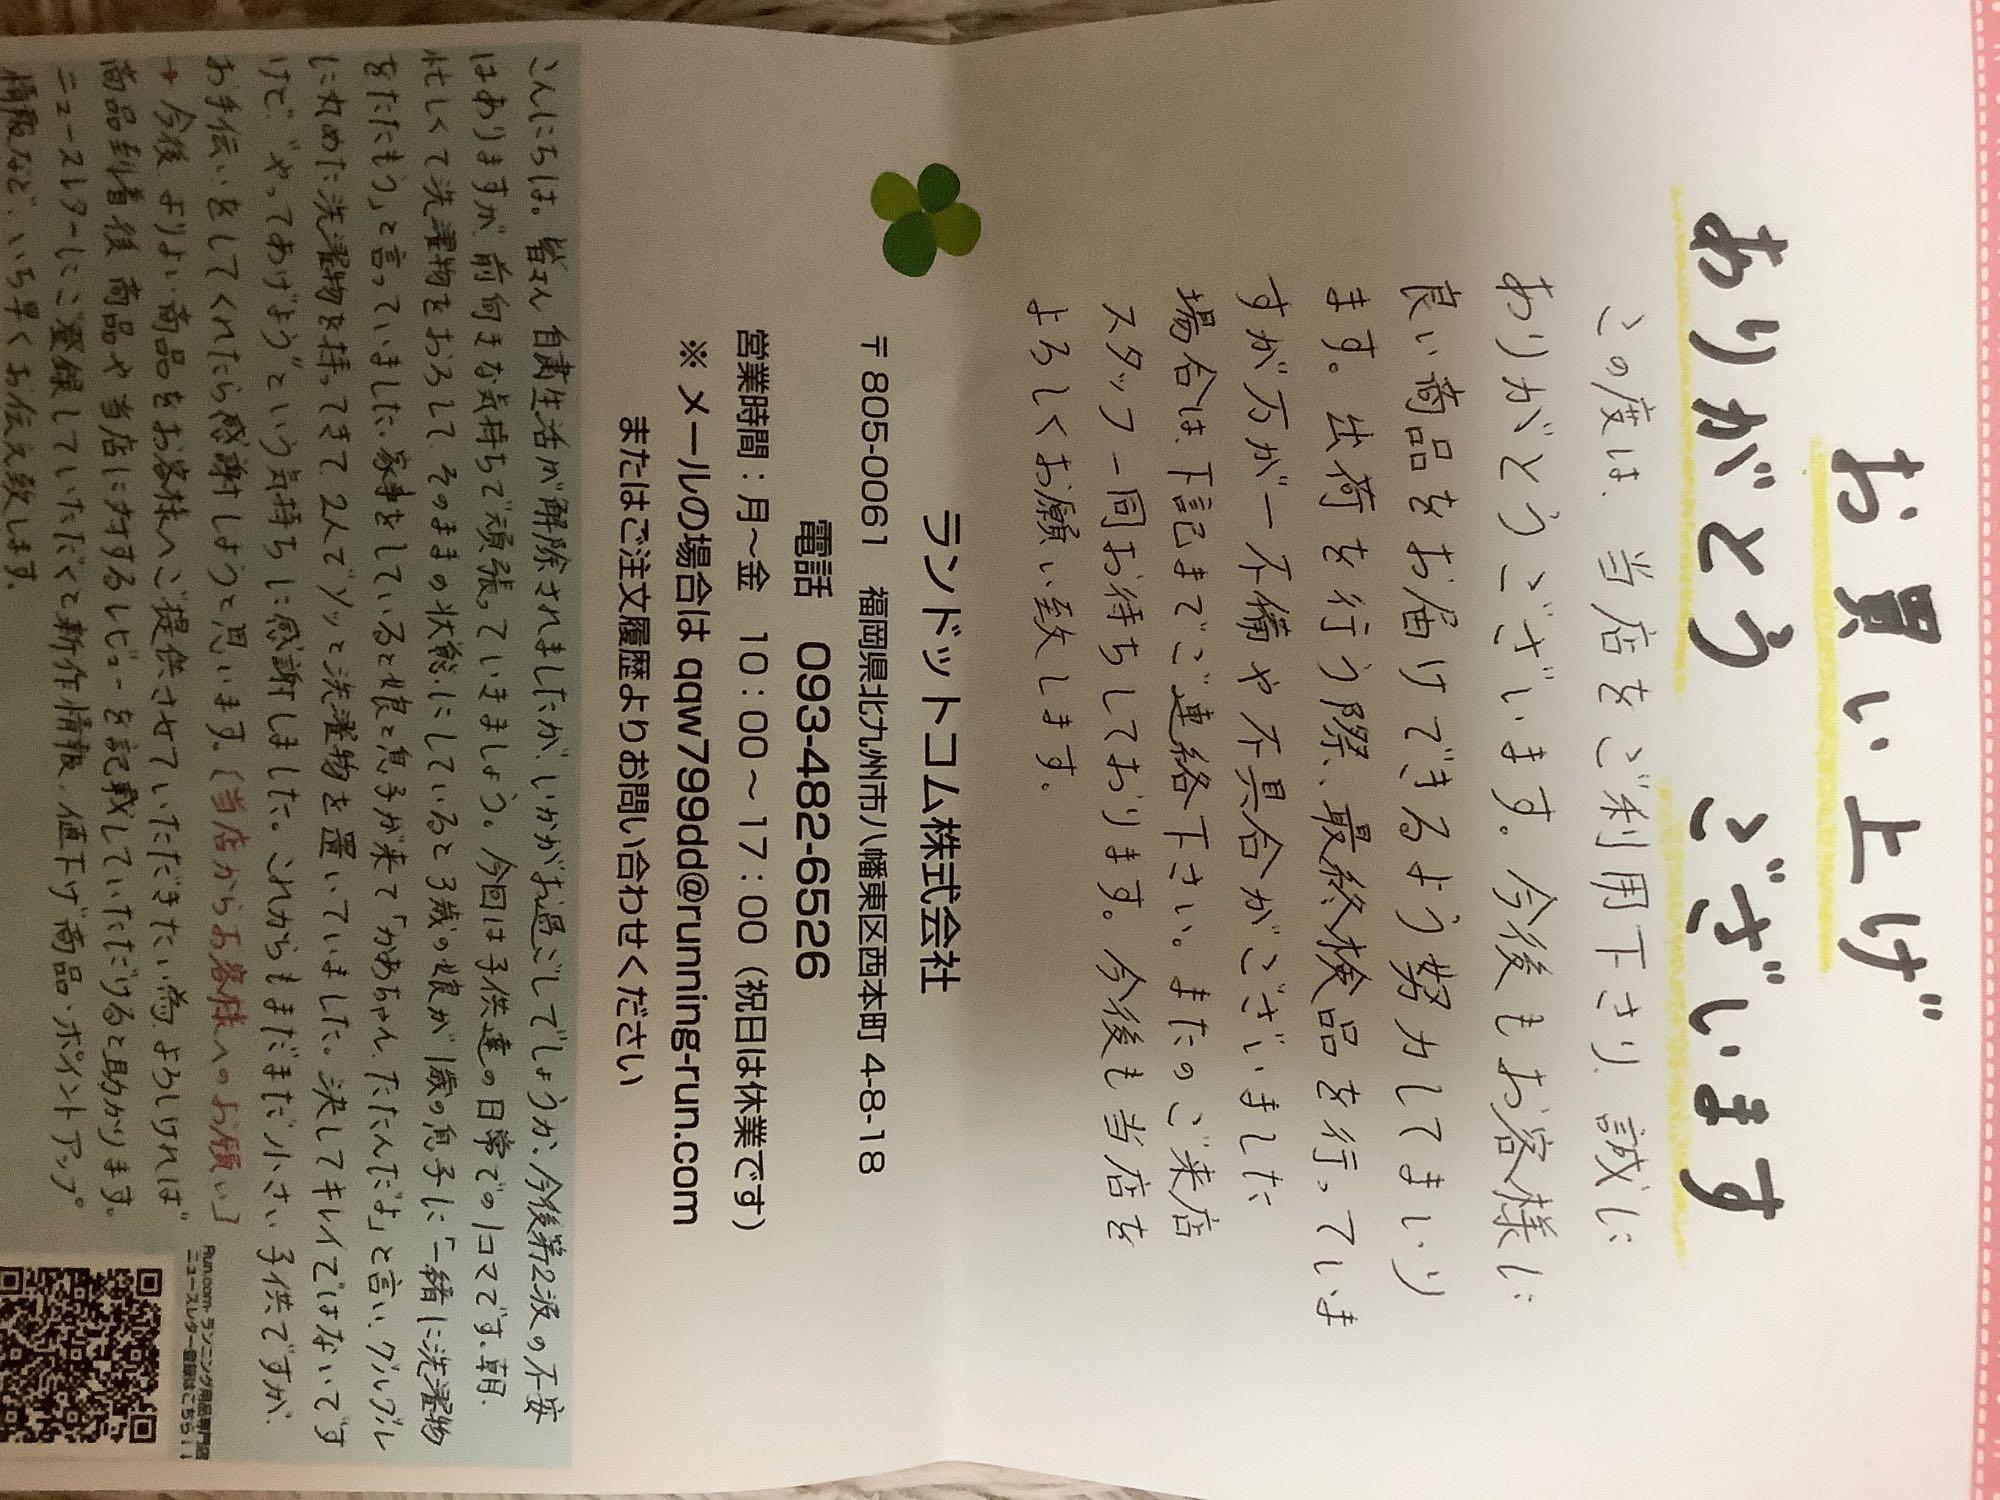 お買い上げ
ありがとうございます
この度は、当店をご利用下さり、誠に
ありがとうございます。今後もお客様に
良い商品をお届けできるよう努力してまいり
ます。出荷を行う際、最終検品を行っていま
すが万が一不備や不具合がございました
場合は、下記までご連絡下さい。またのご来店
スタッフ一同お待ちしております。今後も当店を
よろしくお願い致します。
ランドットコム株式会社
〒805-0061 福岡県北九州市八幡東区西本町 4-8-18
電話 093-482-6526
営業時間：月～金 10：00～17：00（祝日は休業です）
※メールの場合は qqw799dd@running-run.com
またはご注文履歴よりお問い合わせください
こんにちは。皆さん自粛生活が解除されましたが、いかがお過ごしでしょうか。今後第2波の不安
はありますが、前向きな気持ちで頑張っていきましょう。今回は子供達の日常での1コマです。朝、
忙しくて洗濯物をおろして、そのままの状態にしていると3歳の娘が1歳の息子に「一緒に洗濯物
をたたもう」と言っていました。家事をしていると娘と息子が来て「かあちゃん、たたんだよ」と言い、グルグル
に丸めた洗濯物を持ってきて、2人でソッと洗濯物を置いていました。決してキレイではないです
けど、“やってあげよう”という気持ちに感謝しました。これからもまだまだ小さい子供ですが、
お手伝いをしてくれたら感謝しようと思います。［当店からお客様へのお願い］
→今後、よりよい商品をお客様へご提供させていただきたい為、よろしければ
商品到着後、商品や当店に対するレビューを記載していただけると助かります。
ニュースレターにご登録していただくと新作情報、値下げ商品、ポイントアップ
情報など、いち早くお伝え致します。
Run.com-ランニング用品専門店
ニュースレター登録はこちら！！